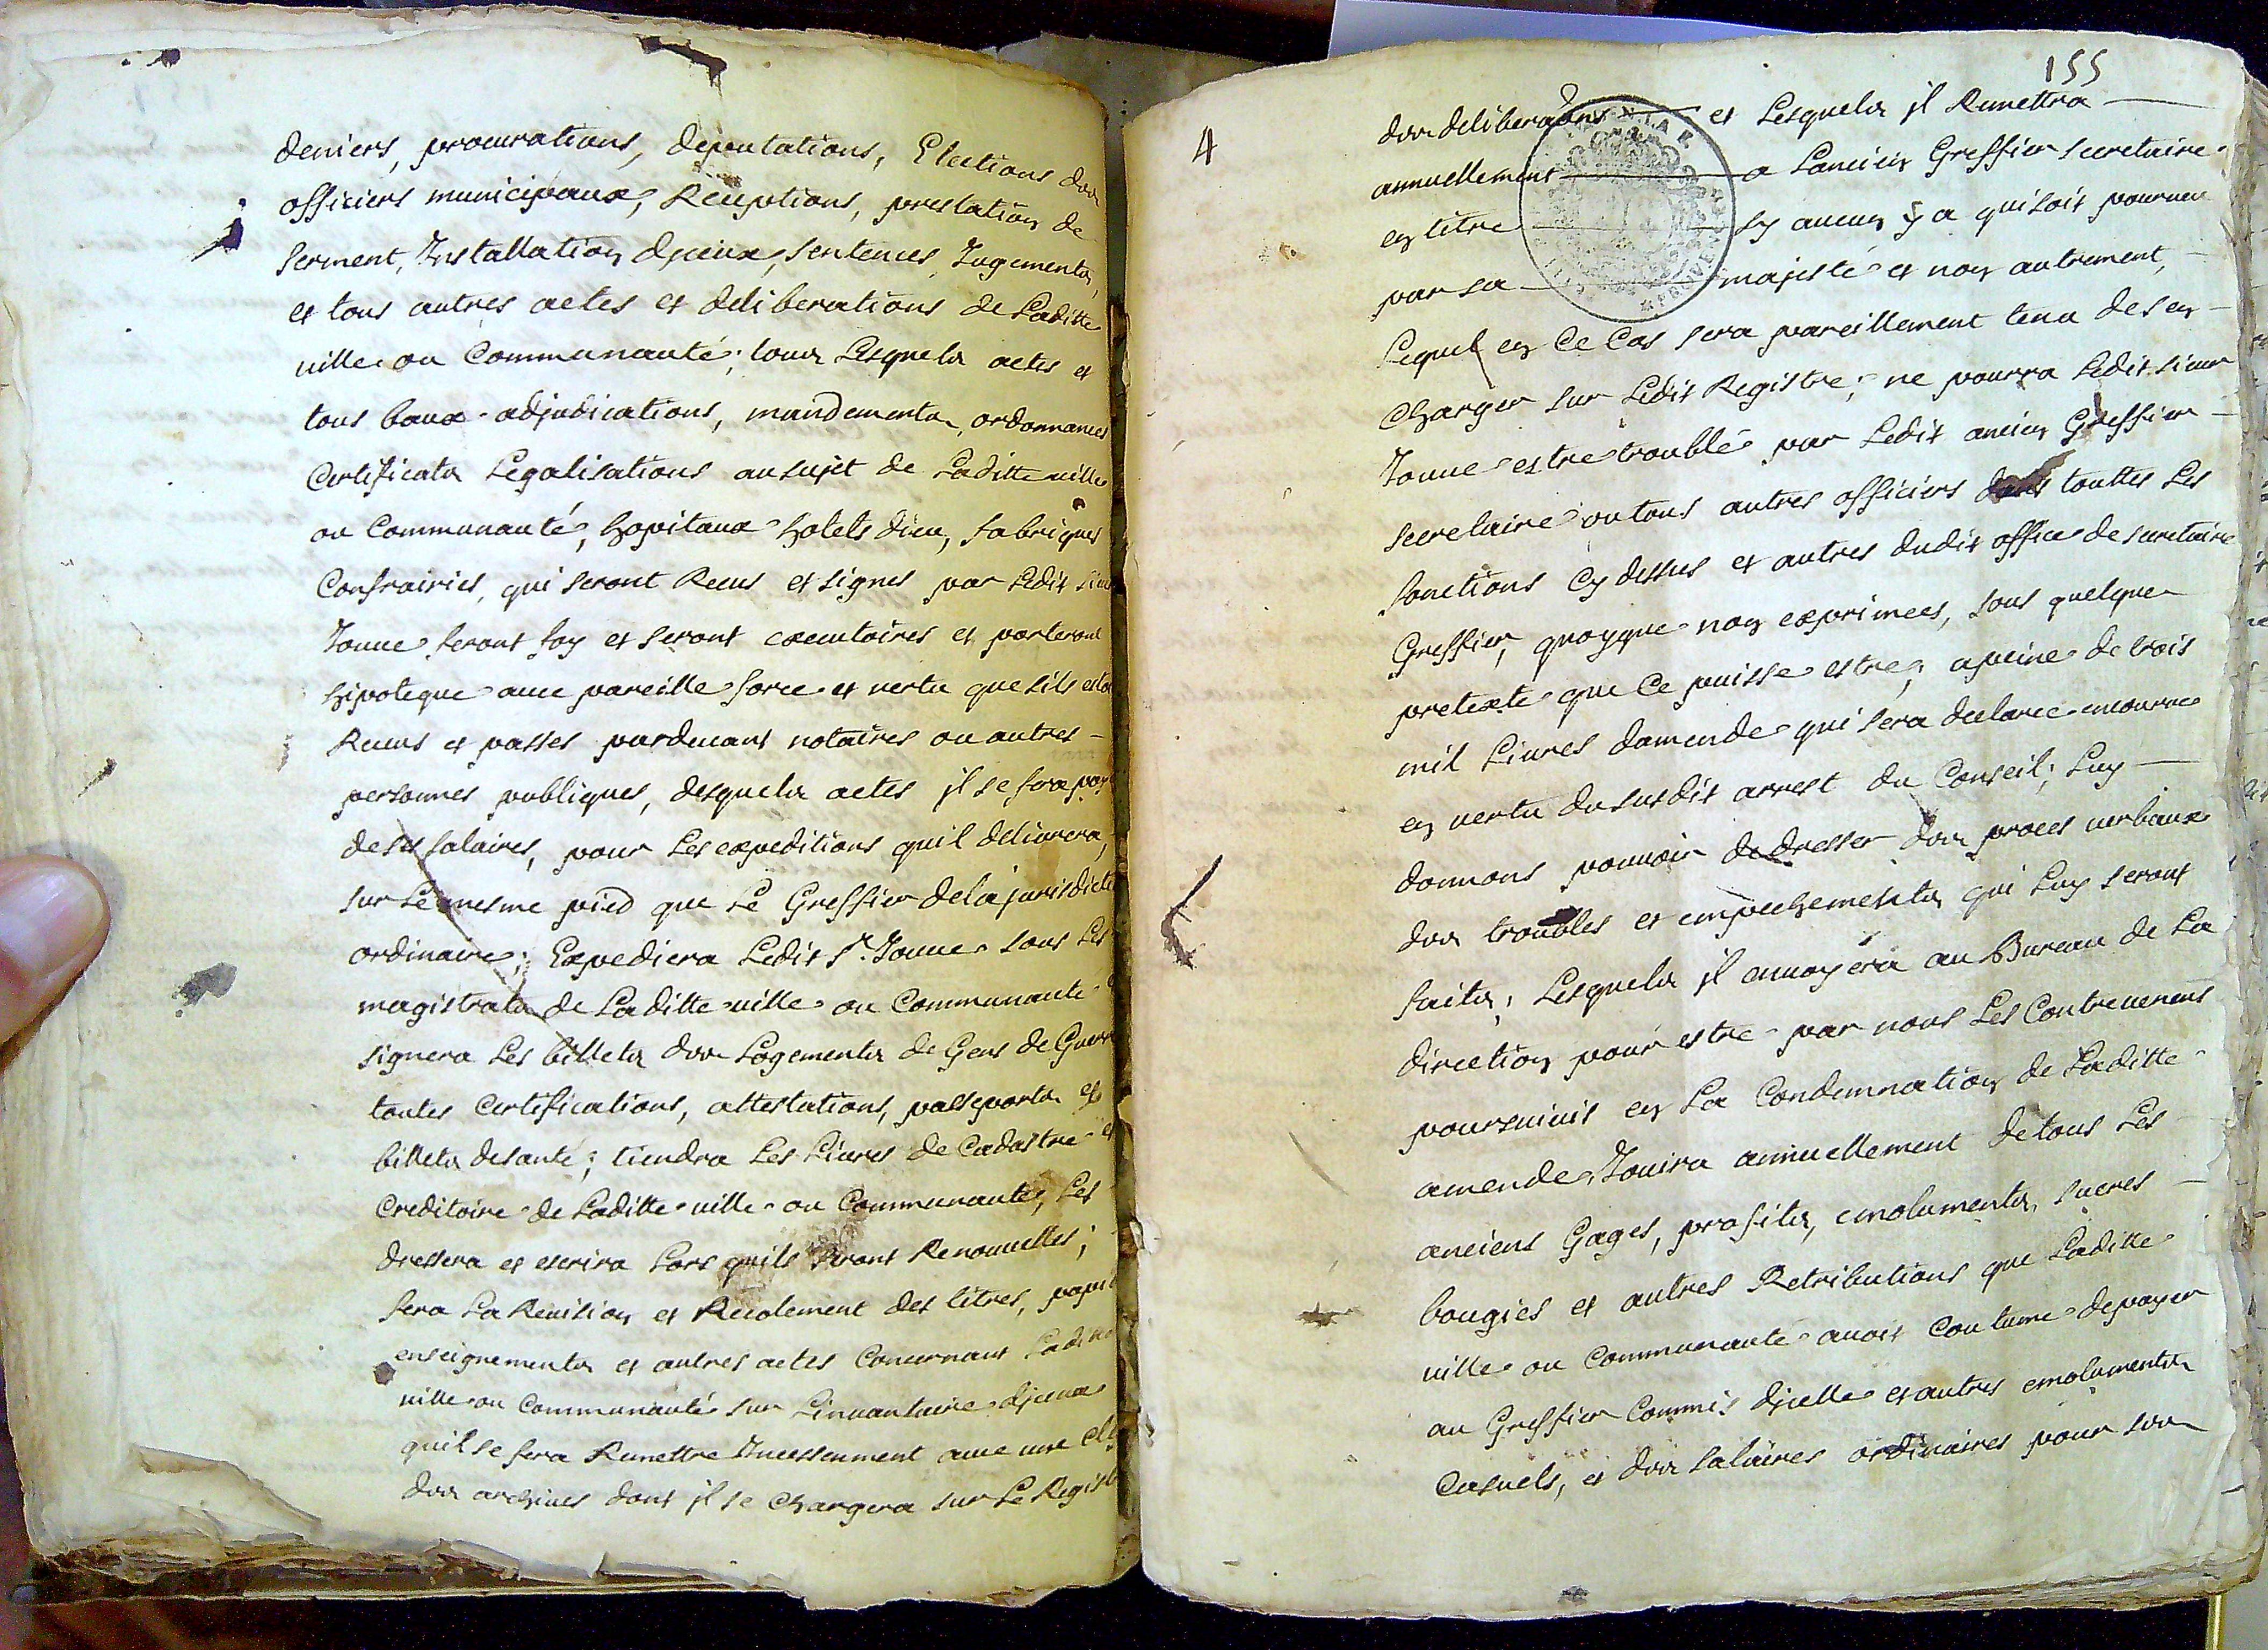 deniers, procurations, deputations, Elections des
officiers municipaux, Receptions, prestation de
serment, Installation dJceux, sentences, Jugements,
et tous autres actes et deliberations de Laditte
ville ou Communauté; tous Lesquels actes et
tous baux adjudications, mandements, ordonnances
Certificats Legalisations au sujet de Laditte ville
ou Communauté, hopitaux hotels dieu, fabriques
Confrairies, qui seront Receus et signes par Ledit sieur
Jouue feront foy et seront executoires et porteront
hipoteque auec pareille force et vertu que sils
Receus et passes pardeuant notaires ou autres
personnes publiques, desquels actes jl se fera
de ses salaires, pour Les expeditions quil deliurera,
sur Le mesme pied que Le Greffier dela jurisdict
ordinaire; Expediera Ledit Sr. Jouue sous Les
magistrats de Laditte ville ou Communauté
signera Les billets des Logements de Gens de Guerre
toutes Certifications, attestations, passeports et
billets desanté; tiendra Les Liures de Cadastre et
Creditoire de Laditte ville ou Communauté, Les
dressera et escrira Lors quils seront Renouuelles;
fera La Reuision et Recolement des titres, papiers
enseignements et autres actes Concernant Laditte
ville ou Communauté sur Linuantaire dJceux
quil se fera Remettre Jncessemment auec une
des archiues dont jl se Chargera sur Le Registre
155
4
des deliberaons et Lesquels jl Remettra
annuellement a Lancien Greffier secretaire
en titre sy aucun y a qui soit pourueu
par sa majesté et non autrement,
Lequel en Ce Cas sera pareillement tenu desen
Charger sur Ledit Registre; ne pourra Ledit sieur
Jouue estre troublé par Ledit ancien Greffier
secretaire ou tous autres officiers dans touttes Les
fonctions Cy dessus et autres dudit office de secretaire
Greffier, quoyque non exprimees, sous quelque
pretexte que Ce puisse estre; apeine de trois
mil Liures damende qui sera declaree encourue
en vertu dususdit arrest du Conseil; Luy
donnons pouuoir de dresser des proces verbaux
des troubles et empechements qui Luy seront
faits; Lesquels jl enuoyera au Bureau de La
direction pour estre par nous Les Contreuenens
poursuiuis en La Condemnation de Laditte
amende, Jouira annuellement de tous Les
anciens Gages, profits, emoluments, sucres
bougies et autres Retributions que Laditte
ville ou Communauté auoit Coutume depayer
au Greffier Commis dJcelle et autres emoluments
Casuels, et des salaires ordinaires pour ses